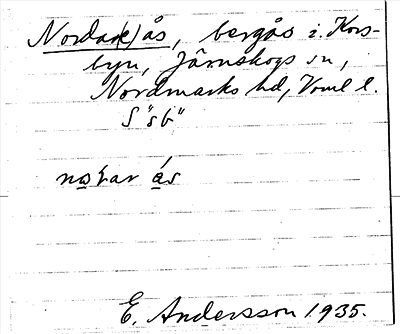 Nordar(e)ås, bergås i Kors-
byn, Järnskogs sn,
Nordmarks hd, Vrml l.
S "sb"
ás
E. Andersson 1935.